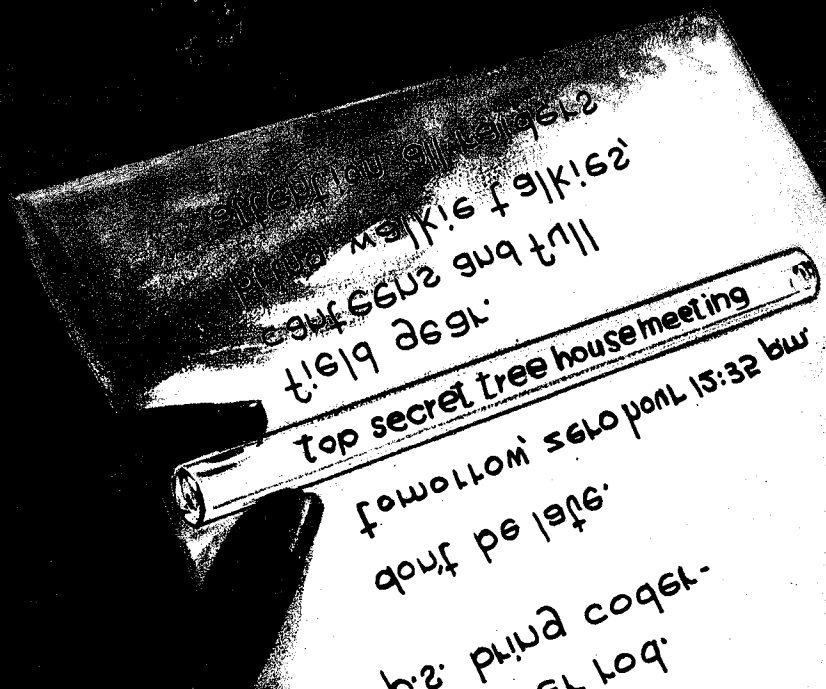 attention all raiders
bring walkie talkies,
canteens and full
field gear.
top secret tree house meeting
tomorrow, zero hour 12:35 pm.
don't be late.
p.s. bring coder-
rod.